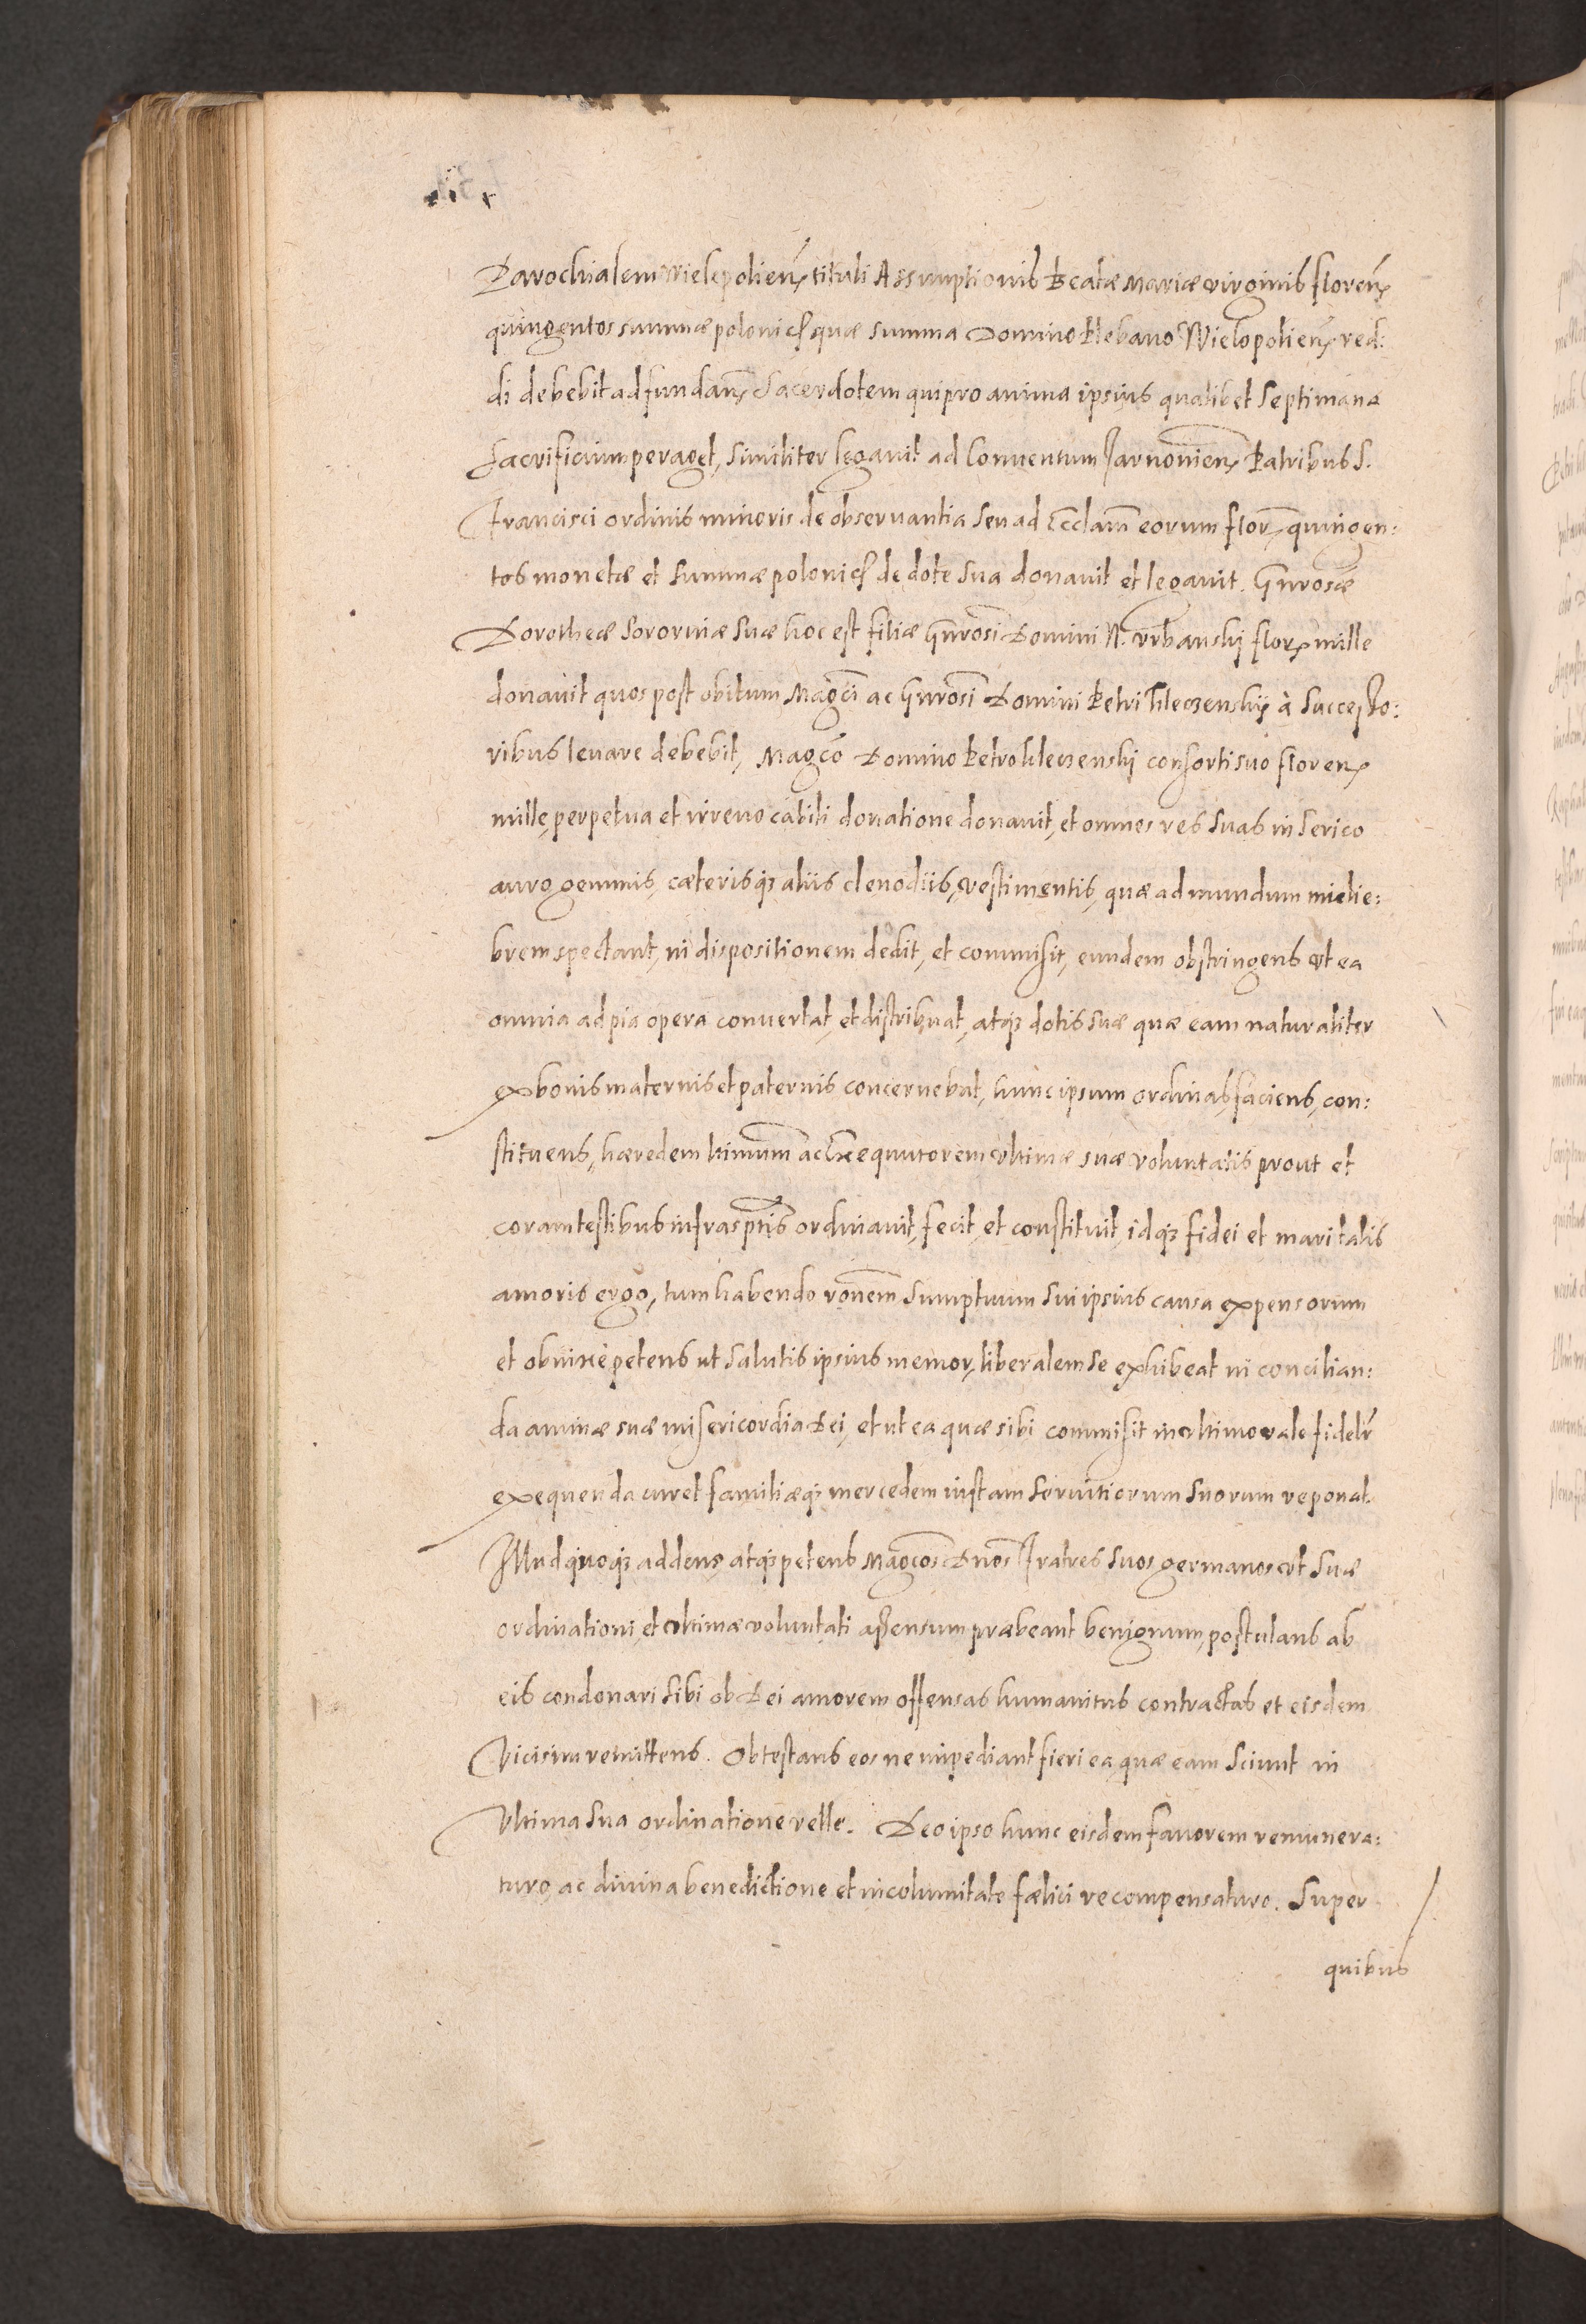 Parochialem Wielepolien. tituli Assumptionis Beatæ Mariæ virginis floren.
quingentos summæ polonicę quæ summa Domino Plebano Wielopolien. red:
di debebit ad fundan. Sacerdotem qui pro anima ipsius qualibet Septimana
Sacrificium peraget, similiter legavit ad Conventum Tarnovien. Patribus S.
Francisci ordinis minoris de observantia seu ad Ecclaiam eorum flor. quingen:
tos monetæ et summæ polonicę de dote sua donavit et legavit. Gnrosæ
Dorotheæ Sororinæ suæ hoc est filiæ Gnrosi Domini N. Vrbanskÿ flor. mille
donavit quos post obitum Magci ac Gnrosi Domini Petri à Successo:
ribus levare debebit, Magco Domino Petro consorti suo floren.
mille perpetua et irrevocabili donatione donavit, et omnes res suas in serico
auro gemmis, cæterisq; aliis clenodiis, vestimentis, quæ ad mundum mielie:
brem spectant, in dispositionem dedit, et commisit, eundem obstringens vt ea
omnia ad pia opera convertat, et distribuat, atq; dotis suæ quæ eam naturaliter
ex bonis maternis et paternis concernebat, hunc ipsum ordinas, faciens, con:
stituens, hæredem ac Exequutorem vltimæ suæ voluntatis prout et
coram testibus infrasptis ordinavit, fecit, et constituit, idq; fidei et maritalis
amoris ergo, tum habendo ronem sumptuum sui ipsius causa expensorum
et obnixè petens ut salutis ipsius memor, liberalem se exhibeat in concilian:
da animæ suæ misericordia Dei, et ut ea quæ sibi commisit in vltimo vale fidelr
exequenda curet familiæq; mercedem iustam servitiorum suorum reponat.
Illud quoq; addens, atq; petens Magcos Dnos Fratres suos germanos vt suæ
ordinationi, et vltimæ voluntati assensum præbeant benignum, postulans ab
eis condonari sibi ob Dei amorem offensas humanitus contractas et eisdem
Vicisim remittens. Obtestans eos ne impediant fieri ea quæ eam sciunt in
Vltima sua ordinatione velle. Deo ipso hunc eisdem favorem remunera:
turo ac divina benedictione et incolumitate fælici recompensaturo. Super
quibus